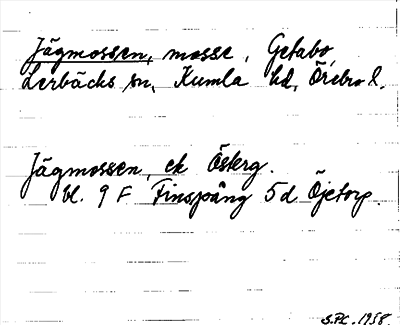 Jägmossen, mosse, Getabo,
Lerbäcks sn, Kumla hd, Örebro l.
Jägmossen, ek Österg.
bl. 9 F Finspång 5 d Öjetorp.
S.P.C. 1958.